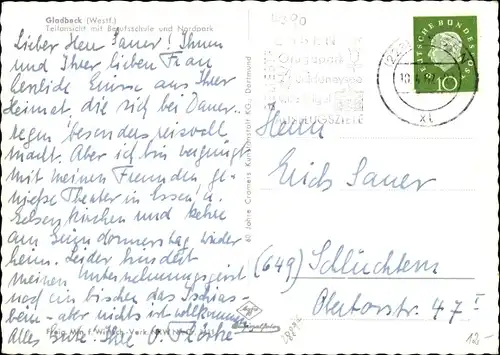 Gladbeck (Westf.)
Teilansicht mit Berufsschule und Nordpark
Lieber Herr Sauer! Ihnen
und Ihrer lieben Frau
herzliche Grüsse aus Ihrer
Heimat, die sich bei Dauer-
regen besonders reizvoll
macht. Aber ich bin vergnügt
mit meinen Freunden, ge-
nieße Theater in Essen u.
Gelsenkirchen und kehre
am Gründonnerstag wieder
heim. Leider hindert
meinen Unternehmungsgeist
noch ein bischen das Ischias-
bein - aber nicht ist vollkommen
Alles Gute! Ihre
60 Jahre Cramers Kunstanstalt KG., Dortmund
DEUTSCHE BUNDESPOST
10
Herrn
Erich Sauer
(649) Schlüchtern
Obertorstr. 47 I
12.-